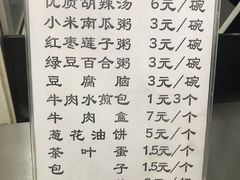 优质胡辣汤 6元/碗
小米南瓜粥 3元/碗
红枣莲子粥 3元/碗
绿豆百合粥 3元/碗
豆腐脑 3元/碗
牛肉水煎包 1元3个
牛肉盒 7元/个
葱花油饼 5元/个
茶叶蛋 1.5元/个
包子 1.5元/个